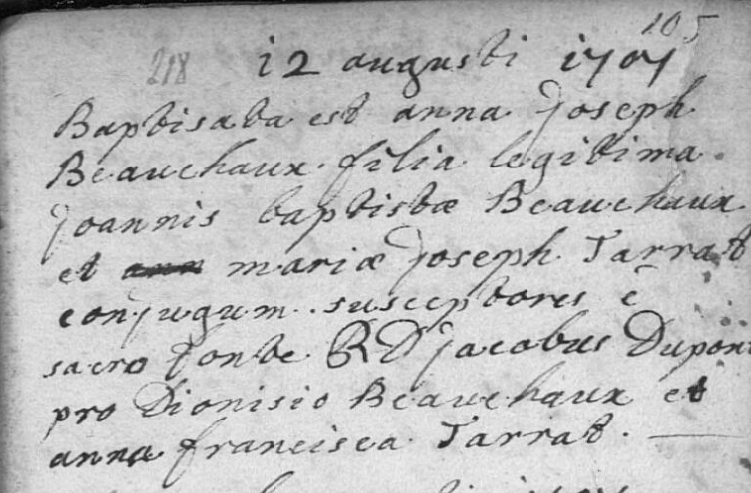 105
218 12 augusti 1707
Baptisata est anna Joseph
Beauchaux filia legitima
Joannis baptistæ Beauchaux
et mariæ Joseph Tarrat
conjugum. susceptores è
sacro fonte RD Jacobus Dupon
pro Dionisio Beauchaux et
anna francisca Tarrat.